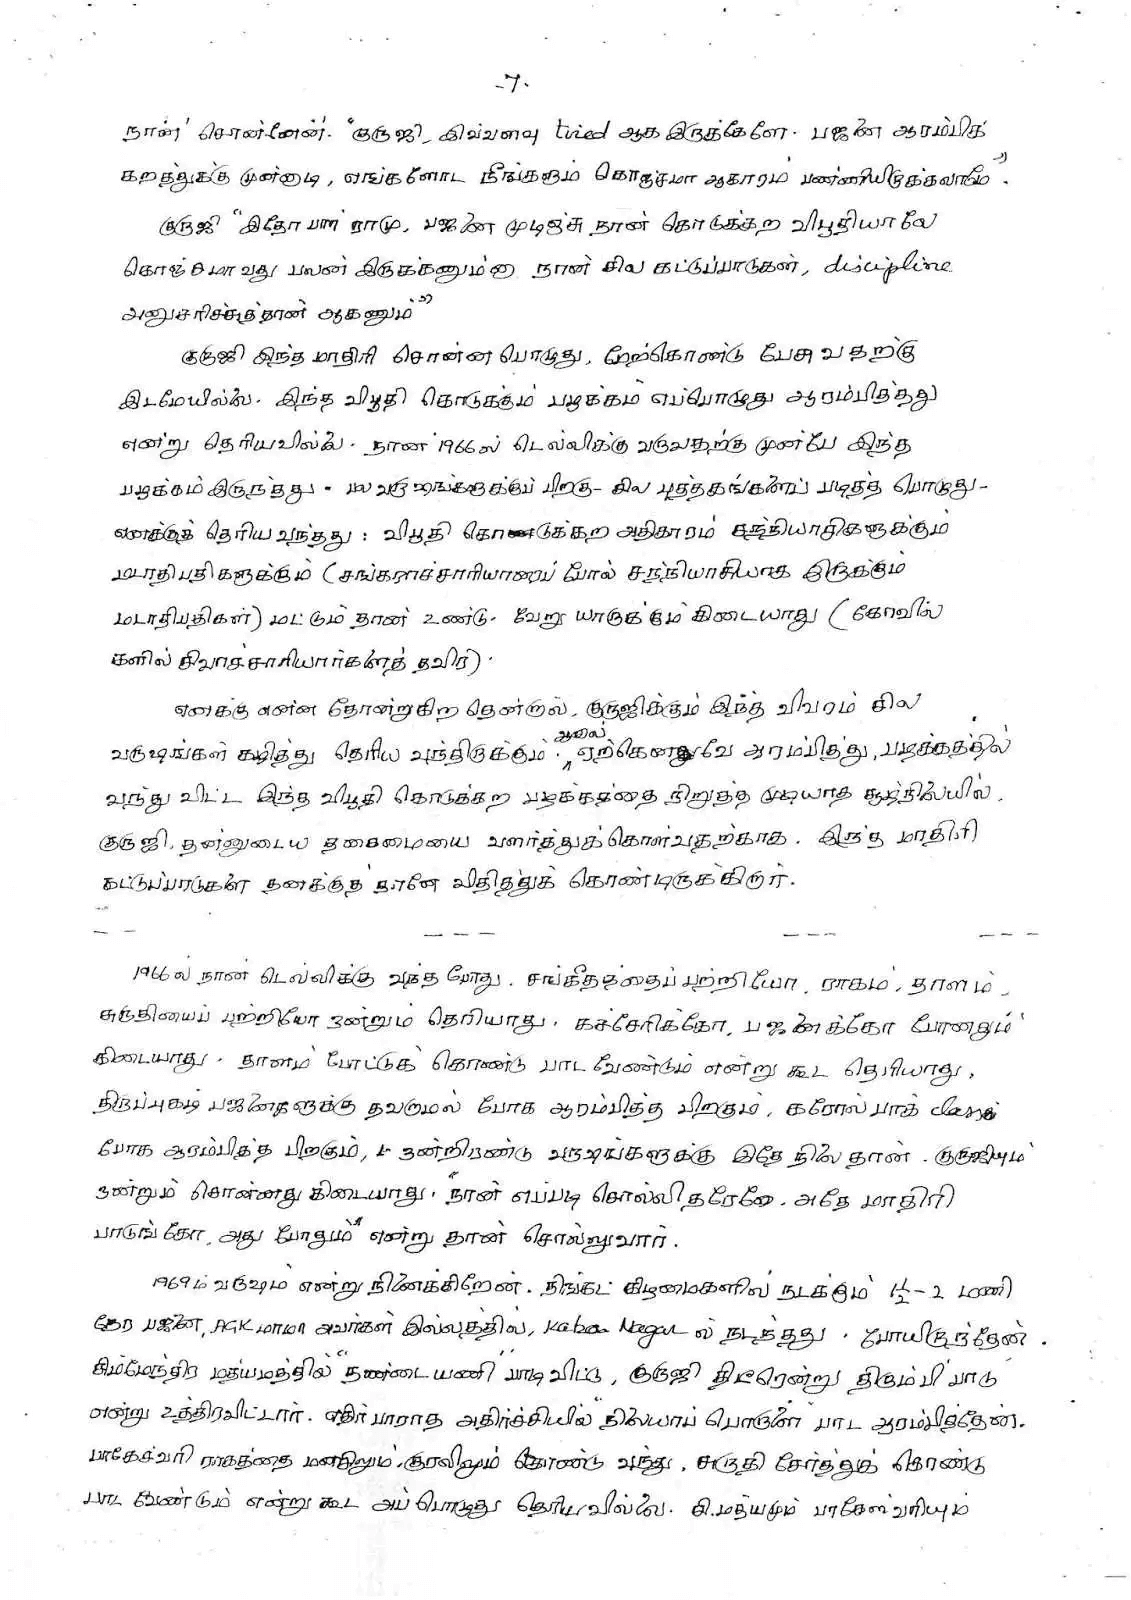 -7-
நான் சொன்னேன். "குருஜி, இவ்வளவு tired ஆக இருக்கேளே. பஜனை ஆரம்பிக்
கறத்துக்கு முன்னாடி, எங்களோட நீங்களும் கொஞ்சமா ஆகாரம் பண்ணியிடுக்கலாமே".
குருஜி "இதோ பார் ராமு, பஜனை முடிஞ்சு நான் கொடுக்கற விபூதியாலே
கொஞ்சமாவது பலன் இருக்கணும்னா நான் சில கட்டுப்பாடுகள், discipline
அனுசரிச்சுத்தான் ஆகணும்"
குருஜி இந்த மாதிரி சொன்ன பொழுது, மேற்கொண்டு பேசுவதற்கு
இடமேயில்லை. இந்த விபூதி கொடுக்கும் பழக்கம் எப்பொழுது ஆரம்பித்தது
என்று தெரியவில்லை. நான் 1966ல் டெல்லிக்கு வருவதற்கு முன்பே இந்த
பழக்கம் இருந்தது - பல வருஷங்களுக்குப் பிறகு - சில புத்தகங்களைப் படித்த பொழுது -
எனக்குத் தெரிய வந்தது : விபூதி கொடுக்கற அதிகாரம் சந்நியாசிகளுக்கும்
மடாதிபதிகளுக்கும் (சங்கராச்சாரியாரைப் போல் சந்நியாசியாக இருக்கும்
மடாதிபதிகள்) மட்டும் தான் உண்டு. வேறு யாருக்கும் கிடையாது (கோவில்
களில் சிவாச்சாரியார்களைத் தவிர).
எனக்கு என்ன தோன்றுகிற தென்றால், குருஜிக்கும் இந்த விவரம் சில
வருஷங்கள் கழித்து தெரிய வந்திருக்கும். ஆனால் ஏற்கெனவே ஆரம்பித்து, பழக்கத்தில்
வந்து விட்ட இந்த விபூதி கொடுக்கற பழக்கத்தை நிறுத்த முடியாத சூழ்நிலையில்,
குருஜி, தன்னுடைய தகைமையை வளர்த்துக்கொள்வதற்காக, இந்த மாதிரி
கட்டுப்பாடுகளை தனக்குத் தானே விதித்துக் கொண்டிருக்கிறார்.
1966ல் நான் டெல்லிக்கு வந்த போது, சங்கீதத்தைப் பற்றியோ, ராகம், தாளம்,
சுருதியைப் பற்றியோ ஒன்றும் தெரியாது. கச்சேரிக்கோ, பஜனைக்கோ போனதும்
கிடையாது. தாளம் போட்டுக் கொண்டு பாட வேண்டும் என்று கூட தெரியாது,
திருப்புகழ் பஜனைகளுக்கு தவறாமல் போக ஆரம்பித்த பிறகும், கரோல்பாக் classக்
போக ஆரம்பித்த பிறகும், ஒன்றிரண்டு வருஷங்களுக்கு இதே நிலை தான். குருஜியும்
ஒன்றும் சொன்னது கிடையாது. "நான் எப்படி சொல்லி தரேனோ, அதே மாதிரி
பாடுங்கோ, அது போதும்" என்று தான் சொல்லுவார்.
1969ம் வருஷம் என்று நினைக்கிறேன். திங்கட் கிழமைகளில் நடக்கும் 1½-2 மணி
நேர பஜனை, AGK மாமா அவர்கள் இல்லத்தில், Kaka Nagar ல் நடந்தது. போயிருந்தேன்.
சிம்மேந்திர மத்யமத்தில் "தண்டையணி" பாடிவிட்டு, குருஜி திடீரென்று திரும்பி பாடு
என்று உத்திரவிட்டார். எதிர்பாராத அதிர்ச்சியில் "நிலையாப் பொருளை" பாட ஆரம்பித்தேன்.
பாகேச்வரி ராகத்தை மனதிலும், குரலிலும் கொண்டு வந்து, சுருதி சேர்த்துக் கொண்டு
பாட வேண்டும் என்று கூட அப்பொழுது தெரியவில்லை. சி.மத்யமமும் பாகேஸ்வரியும்